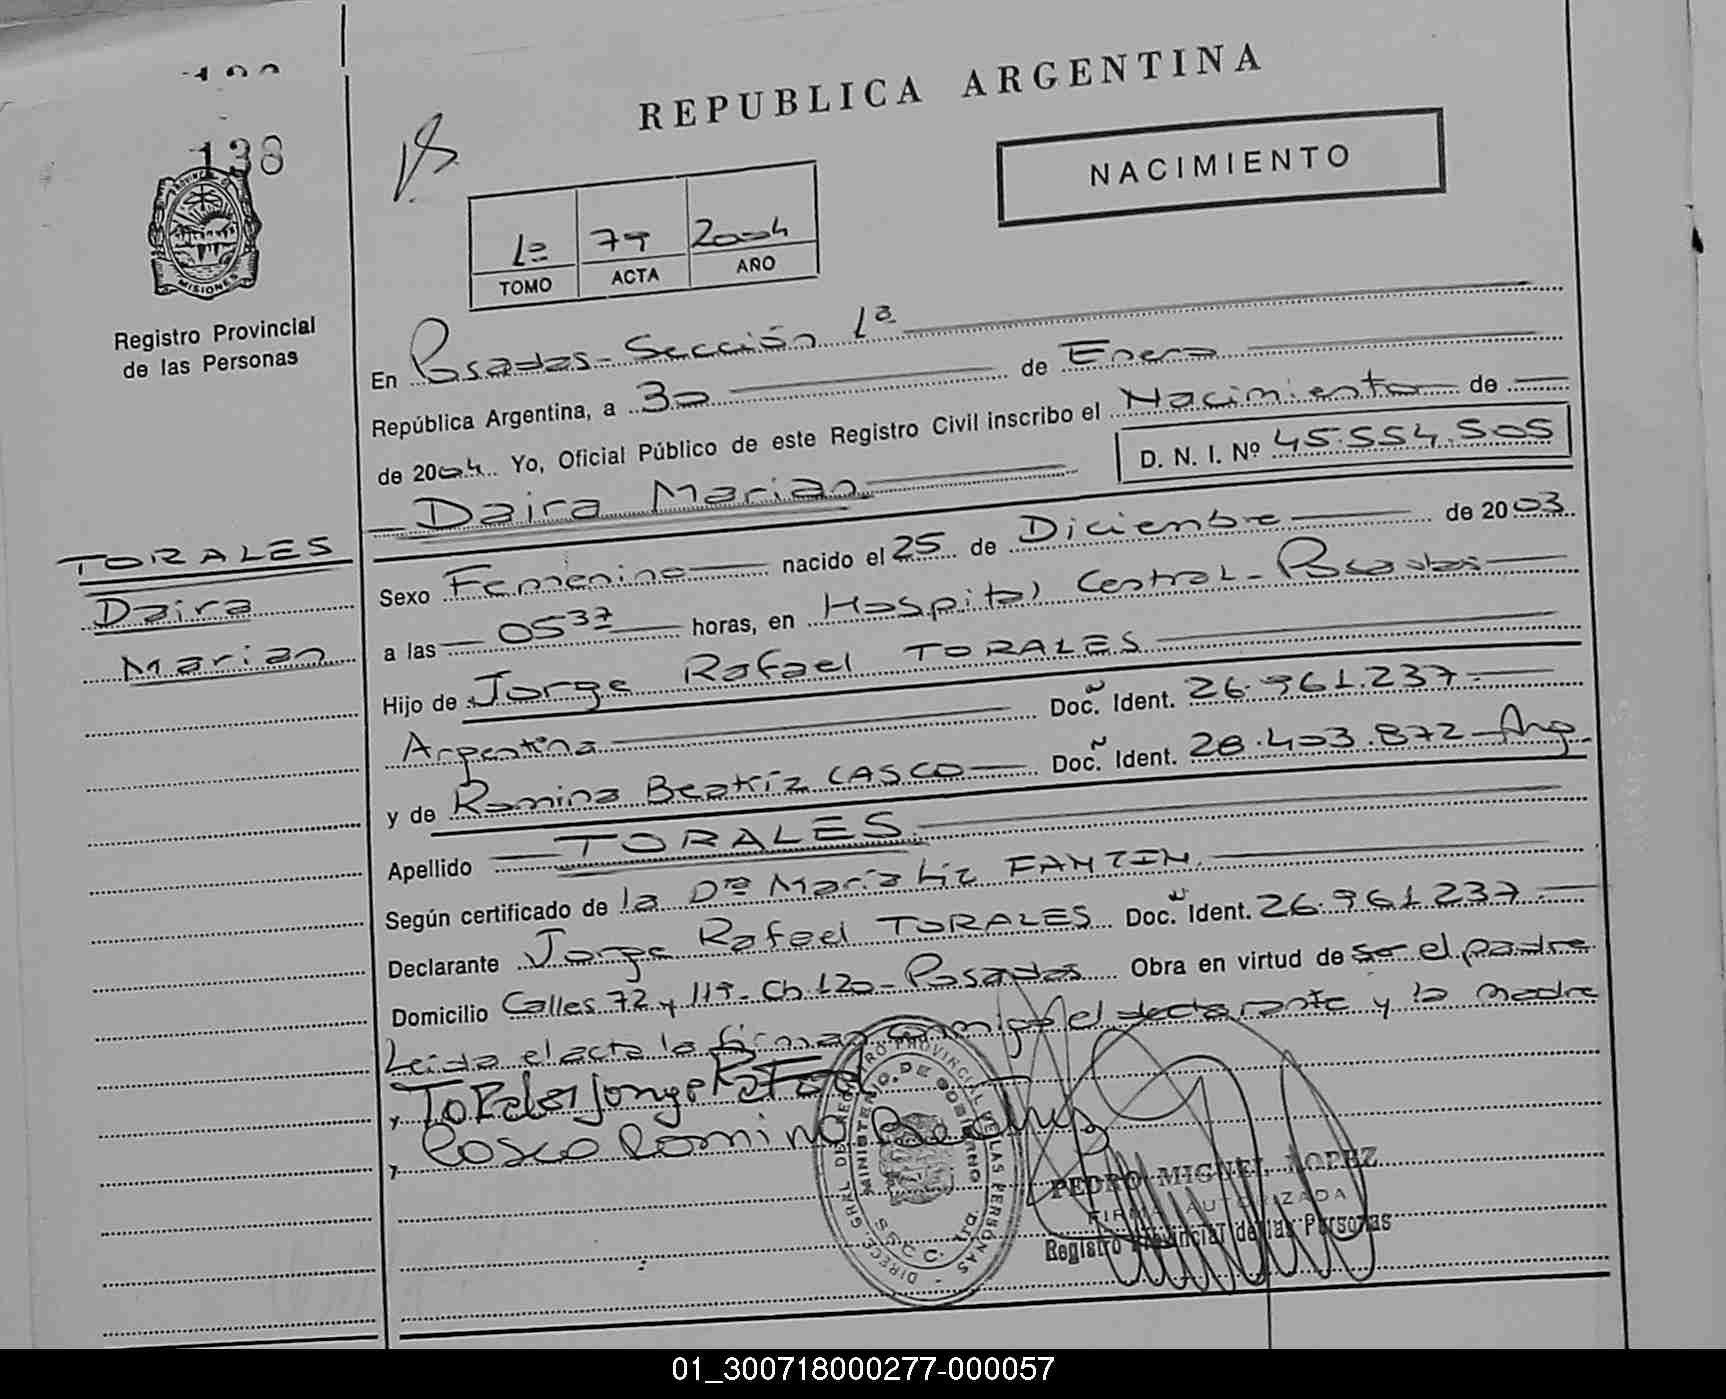 138
REPUBLICA ARGENTINA
NACIMIENTO
1º 79 2004
TOMO ACTA AÑO
PROVINCIA DE MISIONES
Registro Provincial
de las Personas
En Posadas - Sección 1ª
República Argentina, a 30 de Enero
de 2004 Yo, Oficial Público de este Registro Civil inscribo el Nacimiento de
Daira Marian D. N. I. Nº 45.554.505
TORALES
Daira
Marian
Sexo Femenino nacido el 25 de Diciembre de 2003
a las 05 37 horas, en Hospital Central - Posadas
Hijo de Jorge Rafael TORALES
Argentina Doc. Ident. 26.961.237.-
y de Romina Beatriz CASCO Doc. Ident. 28.403.872 Arg.
Apellido TORALES
Según certificado de la Dra María Liz FANTIN
Declarante Jorge Rafael TORALES Doc. Ident. 26.961.237.-
Domicilio Calles 72 y 119 - Ch. 120 - Posadas Obra en virtud de ser el padre
Leida el acta la firman conmigo el declarante y la madre
Torales Jorge Rafael
Casco Romina Beatriz
DIRECC. GRAL. DE REGISTRO PROVINCIAL DE LAS PERSONAS
MINISTERIO DE GOBIERNO
PEDRO MIGUEL LOPEZ
FIRMA AUTORIZADA
Registro Provincial de las Personas
01_300718000277-000057